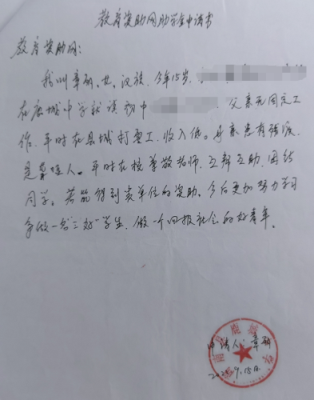 教育资助网助学金申请书
教育资助网：
我叫章研，女，汉族，今年15岁，
在鹿城中学就读初中 父亲无固定工
作，平时在县城打零工，收入低。母亲患有
是 人。平时在校尊敬老师，互帮互助，团结
同学。若能得到贵单位的资助，今后更加努力学习
争做一名"三好"学生，做一个回报社会的好青年。
申请人：章研